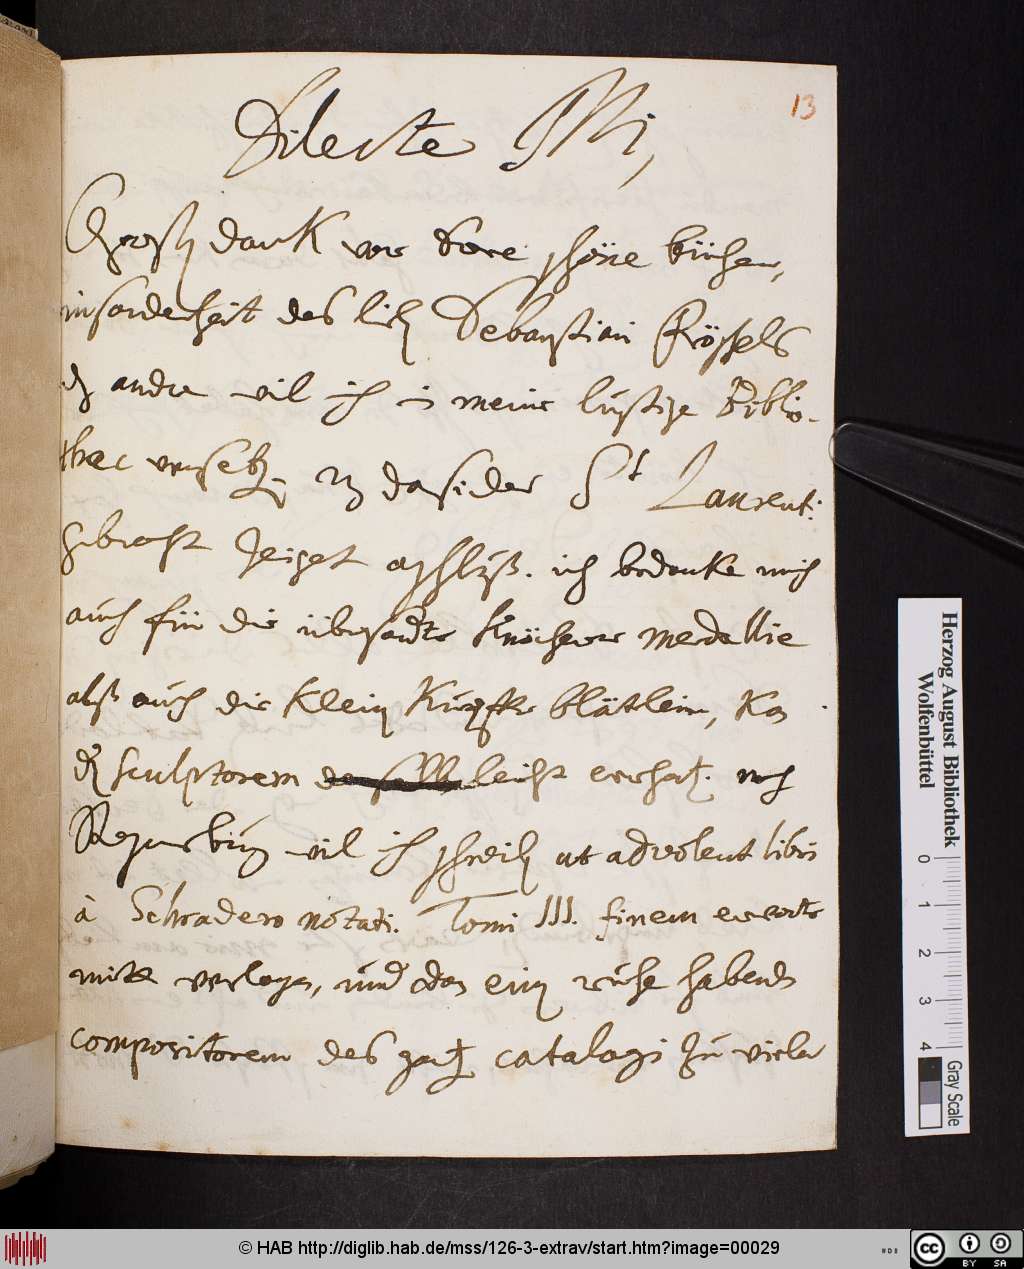 13
Dilecte Mi,
Grossen danck vor dere schöne bücher,
insonderheit des lieb Sebastian Rössels
andre wil ich in meine lustige Biblio-
thec versetz. desider St Laurent:
gebracht zeiget ich bedanke mich
auch für die übersandte Knöcherne Medallie
alß auch die Klein Kupffer blätlein, kan
sculptorem leicht errhat. nach
Regensburg wil ich schreib ut advolent libris
à Schradero notati. Tomi III. finem erwarte
mitt verlangen, und den ein ruhe habend
compositorem des gantz catalogi zu vieler
Herzog August Bibliothek
Wolfenbüttel
0 1 2 3 4
Gray Scale
© HAB http://diglib.hab.de/mss/126-3-extrav/start.htm?image=00029
cc BY SA